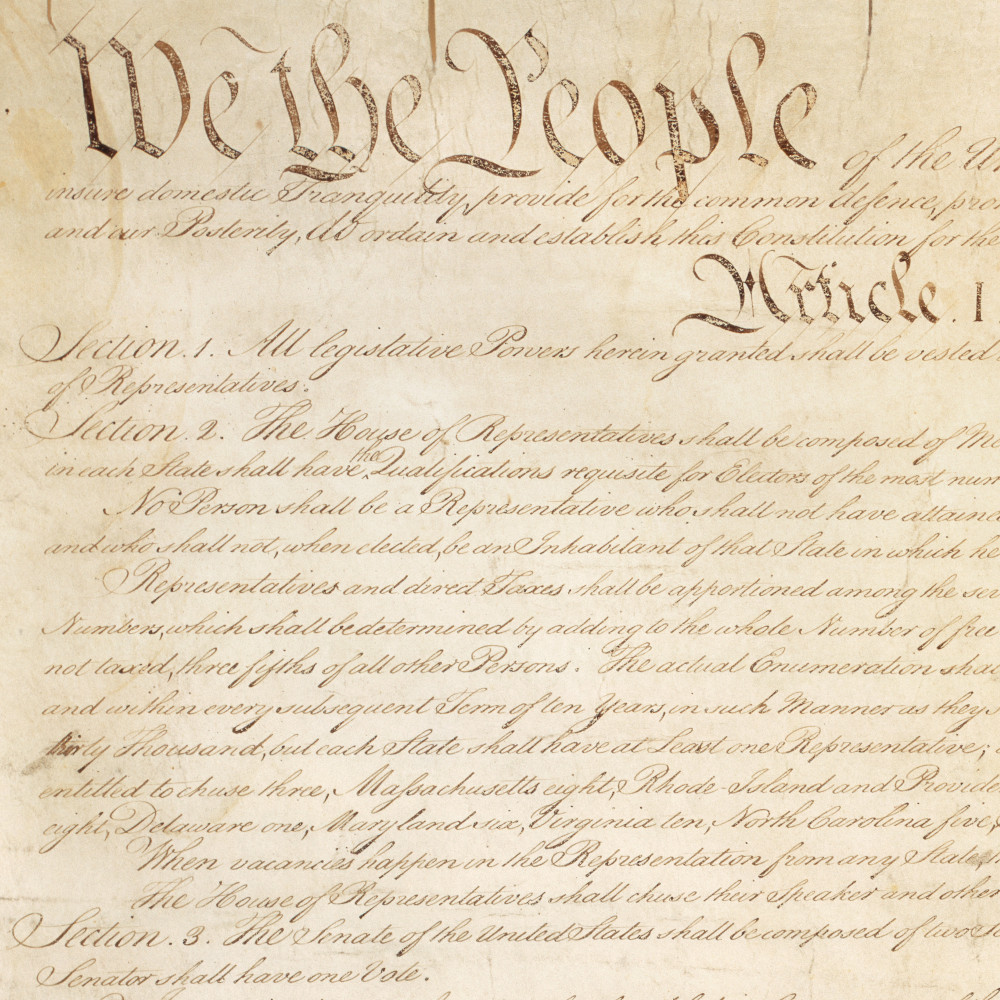 We the People of the Un
insure domestic Tranquility, provide for the common defence, pro
and our Posterity, do ordain and establish this Constitution for the
Article. I
Section. 1. All legislative Powers herein granted shall be vested
of Representatives.
Section. 2. The House of Representatives shall be composed of Me
in each State shall have the Qualifications requisite for Electors of the most num
No Person shall be a Representative who shall not have attaine
and who shall not, when elected, be an Inhabitant of that State in which he
Representatives and direct Taxes shall be apportioned among the sev
Numbers, which shall be determined by adding to the whole Number of free
not taxed, three fifths of all other Persons. The actual Enumeration shal
and within every subsequent Term of ten Years, in such Manner as they
thirty Thousand, but each State shall have at Least one Representative;
entitled to chuse three, Massachusetts eight, Rhode-Island and Provide
eight, Delaware one, Maryland six, Virginia ten, North Carolina five,
When vacancies happen in the Representation from any State, t
The House of Representatives shall chuse their Speaker and other
Section. 3. The Senate of the United States shall be composed of two Se
Senator shall have one Vote.